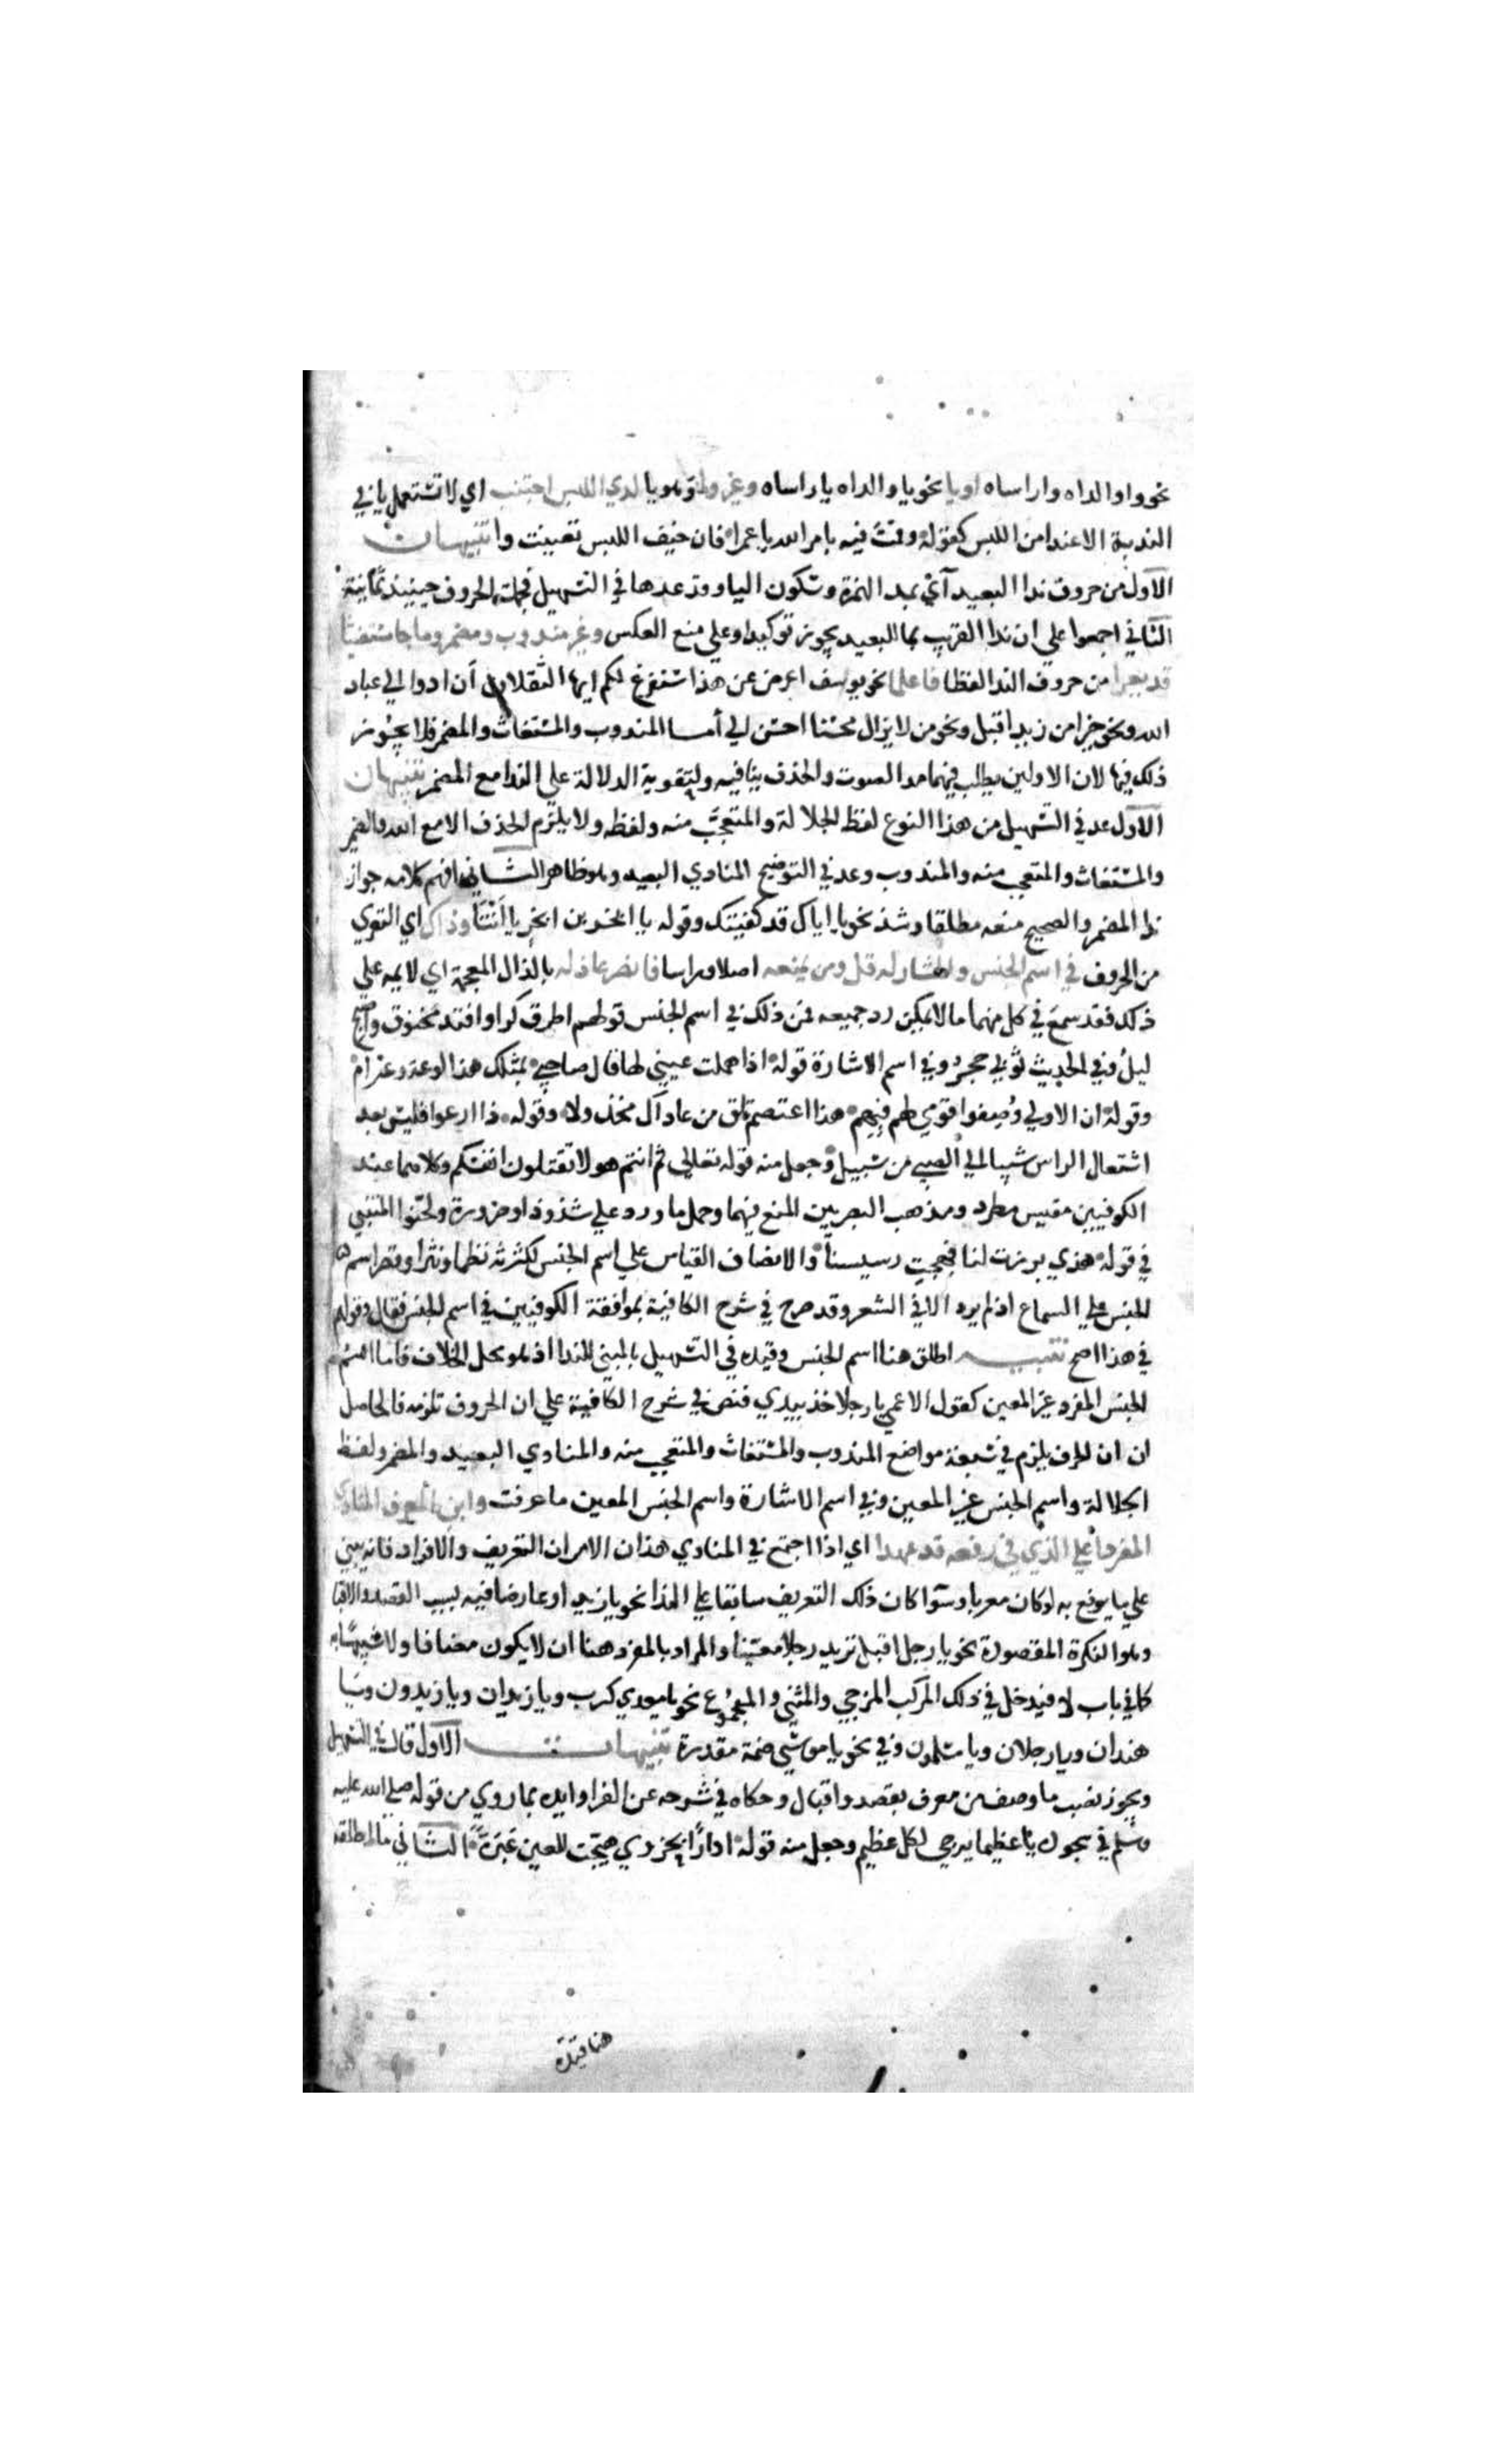 نحو وا والداه وا راساه او يا نحو يا والداه يا راساه وغير وا وهو يا لدي اللبس اجتنب اي لا تستعمل يا في
الندبة الا عند امن اللبس كقوله وقمت فيه بامر الله يا عمرا فان خيف اللبس تعينت وا تنبيهان
الاول من حروف ندا البعيد آي بمد الهمزة وسكون اليا وقد عدها في التسهيل فجملة الحروف حينيذ ثمانية
الثاني اجمعوا علي ان ندا القريب بما للبعيد يجوز توكيدا وعلي منع العكس وغير مندوب ومضمر وما جا مستغاثا
قد يعرا من حروف الندا لفظا فاعلما نحو يوسف اعرض عن هذا سنفرغ لكم ايها الثقلان أن ادوا الي عباد
الله ونحو خيرا من زيد اقبل ونحو من لا يزال محسنا احسن الي أما المندوب والمستغاث والمضمر فلا يجوز
ذلك فيها لان الاولين يطلب فيهما مد الصوت والحذف ينافيه ولتقوية الدلالة علي الندا مع المضمر تنبيهان
الاول عد في التسهيل من هذا النوع لفظ الجلالة والمتعجب منه ولفظه ولا يلزم الحذف الا مع الله والضمير
والمستغاث والمتعجب منه والمندوب وعد في التوضيح المنادي البعيد وهو ظاهر الثاني افهم كلامه جواز
ندا المضمر والصحيح منعه مطلقا وشذ نحو يا اياك قد كفيتك وقوله يا ابجر بن ابجر يا أنتا وذاك اي التعري
من الحروف في اسم الجنس والمشار له قل ومن يمنعه اصلا وراسا فانصر عاذله بالذال المعجمة اي لايمه علي
ذلك فقد سمع في كل منهما ما لا يمكن رد جميعه فمن ذلك في اسم الجنس قولهم اطرق كرا وافتد مخنوق واصبح
ليل وفي الحديث ثوبي حجر وفي اسم الاشارة قوله اذا هملت عيني لها قال صاحبي بمثلك هذا لوعة وغرام
وقوله ان الاولي وصفوا قومي لهم فبهم هذا اعتصم تلق من عاداك مخذولا وقوله ذا ارعوا فليس بعد
اشتعال الراس شيبا الي الصبي من سبيل وجعل منه قوله تعالي ثم انتم هولا تقتلون انفسكم وكلاهما عند
الكوفيين مقيس مطرد ومذهب البصريين المنع فيهما وحمل ما ورد علي شذوذ او ضرورة ولحنوا المتنبي
في قوله هذي برزت لنا فهجت رسيسا والانصاف القياس علي اسم الجنس لكثرته نظما ونثرا وقصر اسم
الجنس علي السماع اذ لم يرد الا في الشعر وقد صرح في شرح الكافية بموافقة الكوفيين في اسم الجنس فقال وقولهم
في هذا اصح تنبيه اطلق هنا اسم الجنس وقيده في التسهيل بالمبني للندا اذ هو محل الخلاف فاما اسم
الجنس المفرد غير المعين كقول الاعمي يا رجلا خذ بيدي فنص في شرح الكافية علي ان الحروف تلزمه فالحاصل
ان ان الحرف يلزم في سبعة مواضع المندوب والمستغاث والمتعجب منه والمنادي البعيد والمضمر ولفظ
الجلالة واسم الجنس غير المعين وفي اسم الاشارة واسم الجنس المعين ما عرفت وابن المعرف المنادي
المفردا علي الذي في رفعه قد عهدا اي اذا اجتمع في المنادي هذان الامران التعريف والافراد فانه يبني
علي ما يرفع به لو كان معربا وسوا كان ذلك التعريف سابقا علي الندا نحو يا زيد او عارضا فيه بسبب القصد والاقبا
وهو النكرة المقصودة نحو يا رجل اقبل تريد رجلا معينا والمراد بالمفرد هنا ان لا يكون مضافا ولا شبيها به
كما في باب لا فيدخل في ذلك المركب المزجي والمثني والمجموع نحو يا معدي كرب ويا زيدان ويا زيدون ويا
هندان ويا رجلان ويا مسلمون وفي نحو يا موسي ضمة مقدرة تنبيهات الاول قال في التسهيل
ويجوز نصب ما وصف من معرف بقصد واقبال وحكاه في شرحه عن الفرا وايده بما روي من قوله صلي الله عليه
وسلم في سجوده يا عظيما يرجي لكل عظيم وجعل منه قوله ادارا بحزوي هيجت للعين عبرة الثاني ما اطلقه
هنا قيده